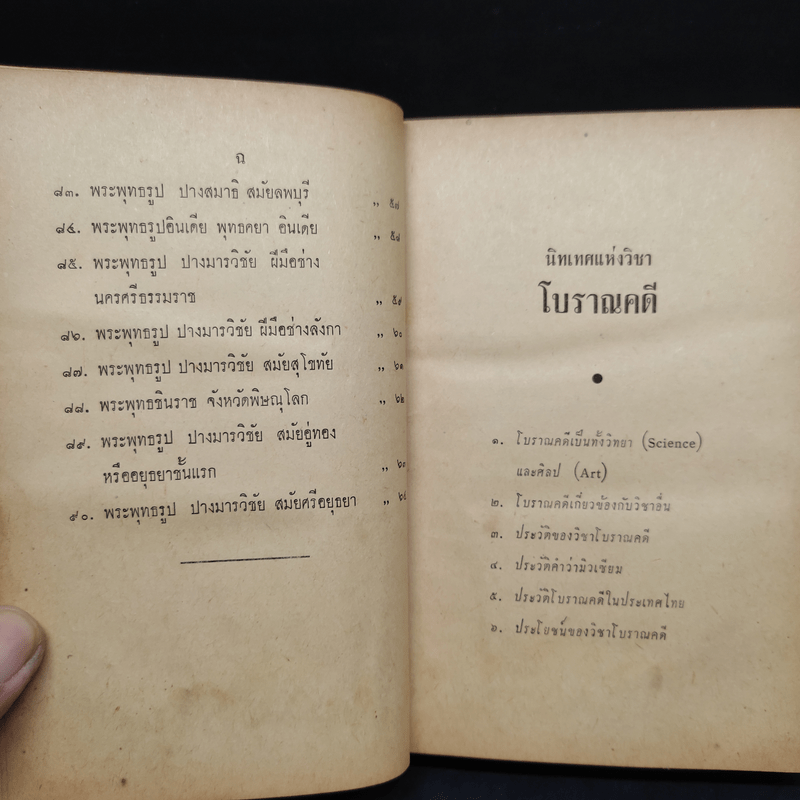 ฉ
๘๓. พระพุทธรูป ปางสมาธิ สมัยลพบุรี ,, ๕๗
๘๔. พระพุทธรูปอินเดีย พุทธคยา อินเดีย ,, ๕๘
๘๕. พระพุทธรูป ปางมารวิชัย ฝีมือช่าง
นครศรีธรรมราช ,, ๕๙
๘๖. พระพุทธรูป ปางมารวิชัย ฝีมือช่างลังกา ,, ๖๐
๘๗. พระพุทธรูป ปางมารวิชัย สมัยสุโขทัย ,, ๖๑
๘๘. พระพุทธชินราช จังหวัดพิษณุโลก ,, ๖๒
๘๙. พระพุทธรูป ปางมารวิชัย สมัยอู่ทอง
หรืออยุธยาชั้นแรก ,, ๖๓
๙๐. พระพุทธรูป ปางมารวิชัย สมัยศรีอยุธยา ,, ๖๔
นิทเทศแห่งวิชา
โบราณคดี
๑. โบราณคดีเป็นทั้งวิทยา (Science)
และศิลป (Art)
๒. โบราณคดีเกี่ยวข้องกับวิชาอื่น
๓. ประวัติของวิชาโบราณคดี
๔. ประวัติคำว่ามิวเซียม
๕. ประวัติโบราณคดีในประเทศไทย
๖. ประโยชน์ของวิชาโบราณคดี